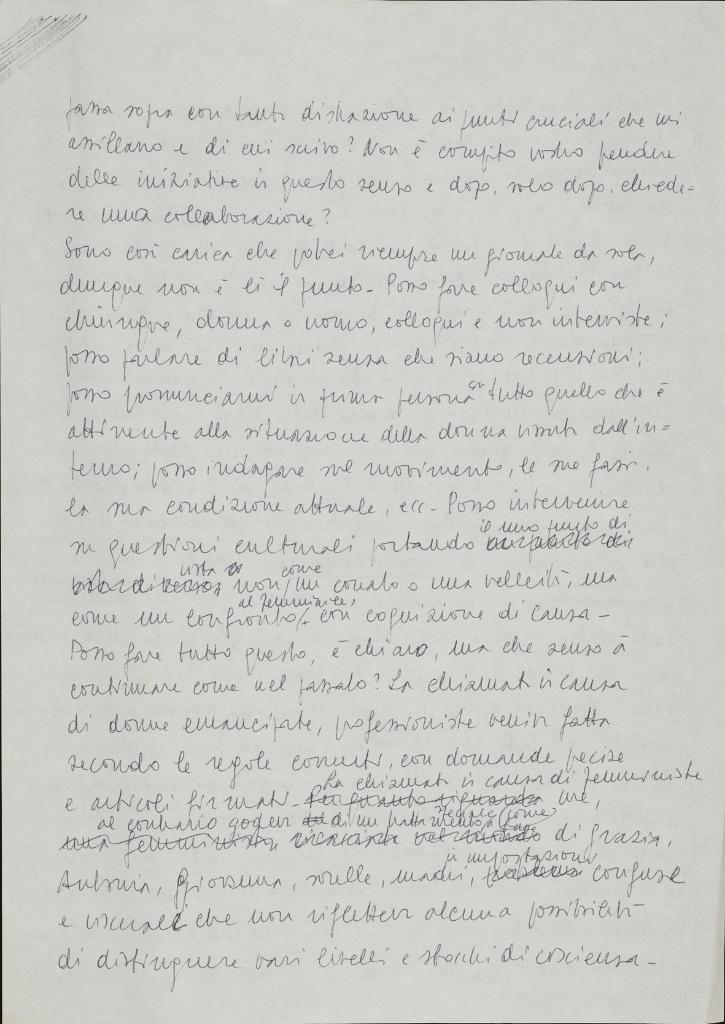 passa sopra con tanta distrazione ai punti cruciali che mi
assillano e di cui scrivo? Non è compito vostro prendere
delle iniziative in questo senso e dopo, solo dopo, chiede=
re una collaborazione?
Sono così carica che potrei riempire un giornale da sola,
dunque non è lì il punto. Posso fare colloqui con
chiunque, donna o uomo, colloqui e non interviste;
posso parlare di libri senza che siano recensioni;
posso pronunciarmi in prima persona su tutto quello che è
attinente alla situazione della donna vissuta dall'in=
terno; posso indagare sul movimento, le sue fasi,
la sua condizione attuale, ecc. Posso intervenire
su questioni culturali portando il mio punto di
vista non come un conato o una velleità, ma
come un confronto al femminile, con cognizione di causa.
Posso fare tutto questo, è chiaro, ma che senso à
continuare come nel passato? La chiamata in causa
di donne emancipate, professioniste veniva fatta
secondo le regole correnti, con domande precise
e articoli firmati. La chiamata in causa di femministe
me,
al contrario godeva di un trattamento (come
di Grazia,
Antonia, Giovanna, sorelle, madri, in impostazioni confuse
e viscerali che non riflettevano alcuna possibilità
di distinguere vari livelli e sbocchi di coscienza.